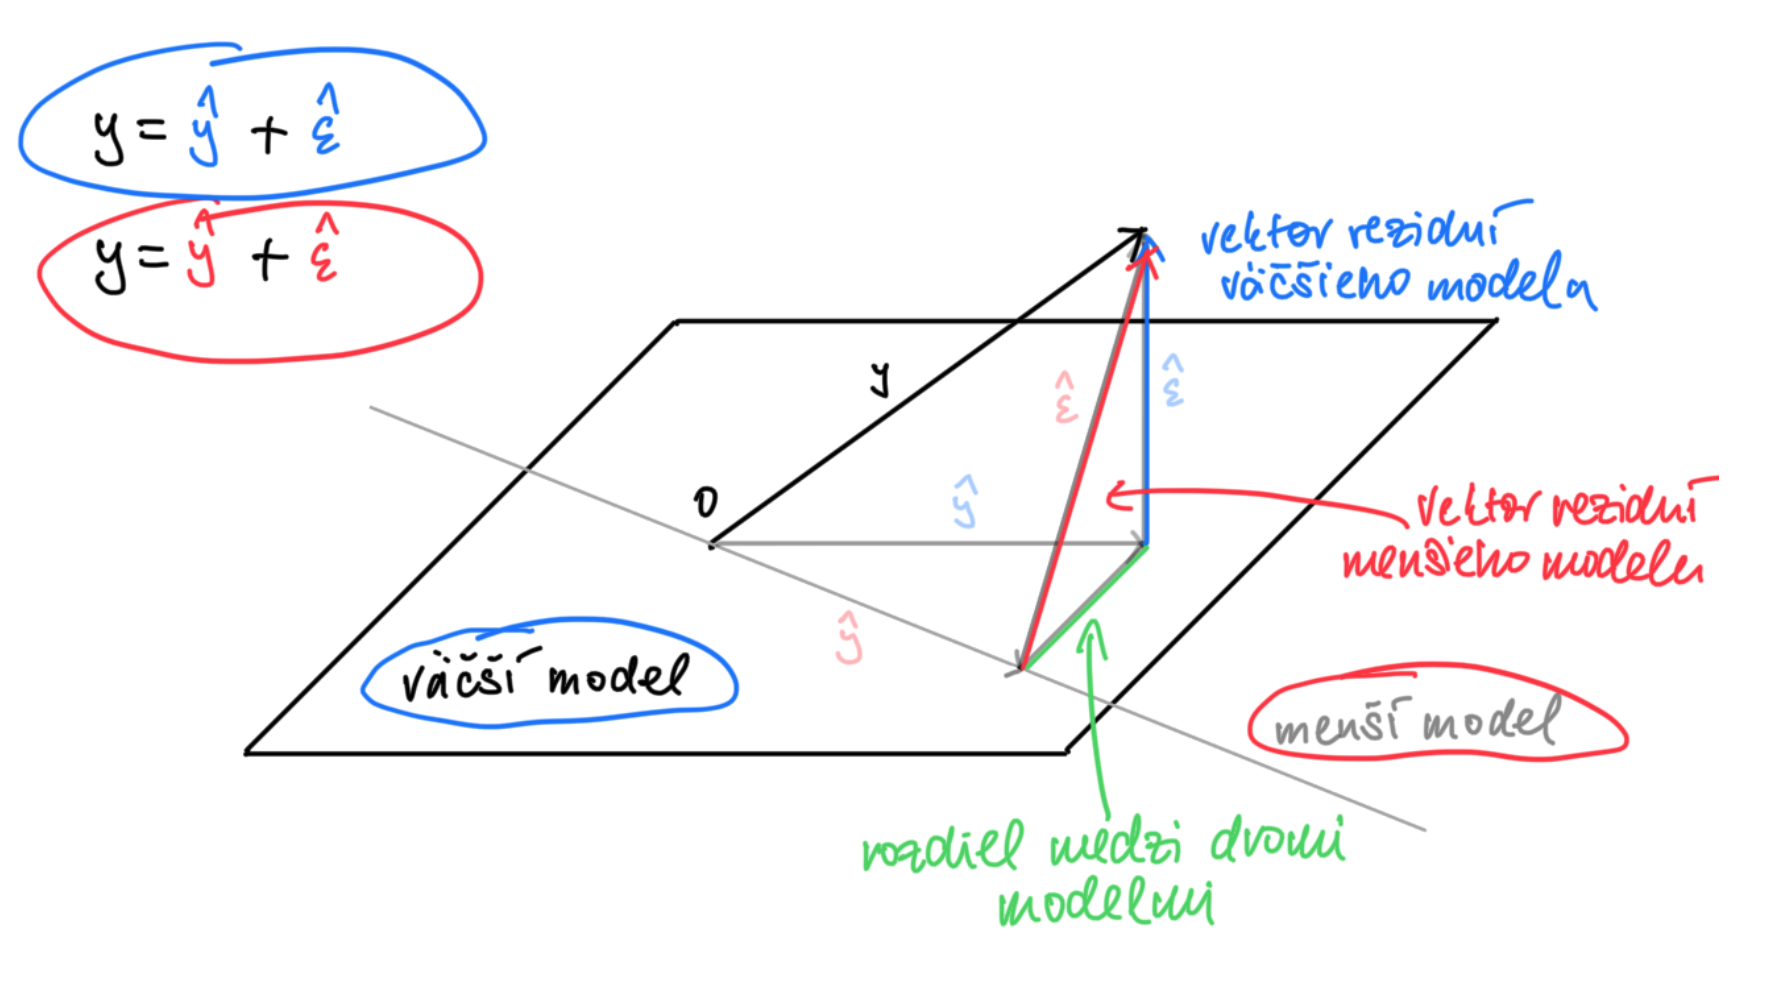 y = ŷ + ε̂
y = ŷ + ε̂
vektor rezíduí
väčšieho modela
y
ε̂
ε̂
0
ŷ
vektor rezíduí
menšieho modelu
ŷ
väčší model
menší model
rozdiel medzi dvomi
modelmi